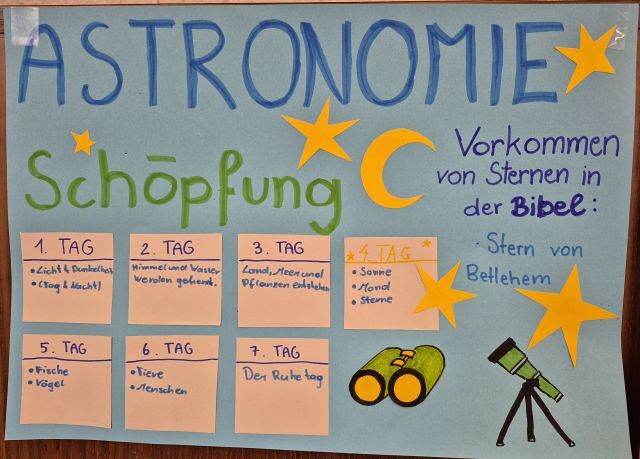 ASTRONOMIE
Schöpfung
Vorkommen
von Sternen in
der Bibel:
· Stern von
Betlehem
1. TAG
• Licht & Dunkelheit
• (Tag & Nacht)
2. TAG
Himmel und Wasser
werden getrennt.
3. TAG
Land, Meer und
Pflanzen entstehen
4. TAG
• Sonne
• Mond
• Sterne
5. TAG
• Fische
• Vögel
6. TAG
• Tiere
• Menschen
7. TAG
Der Ruhetag